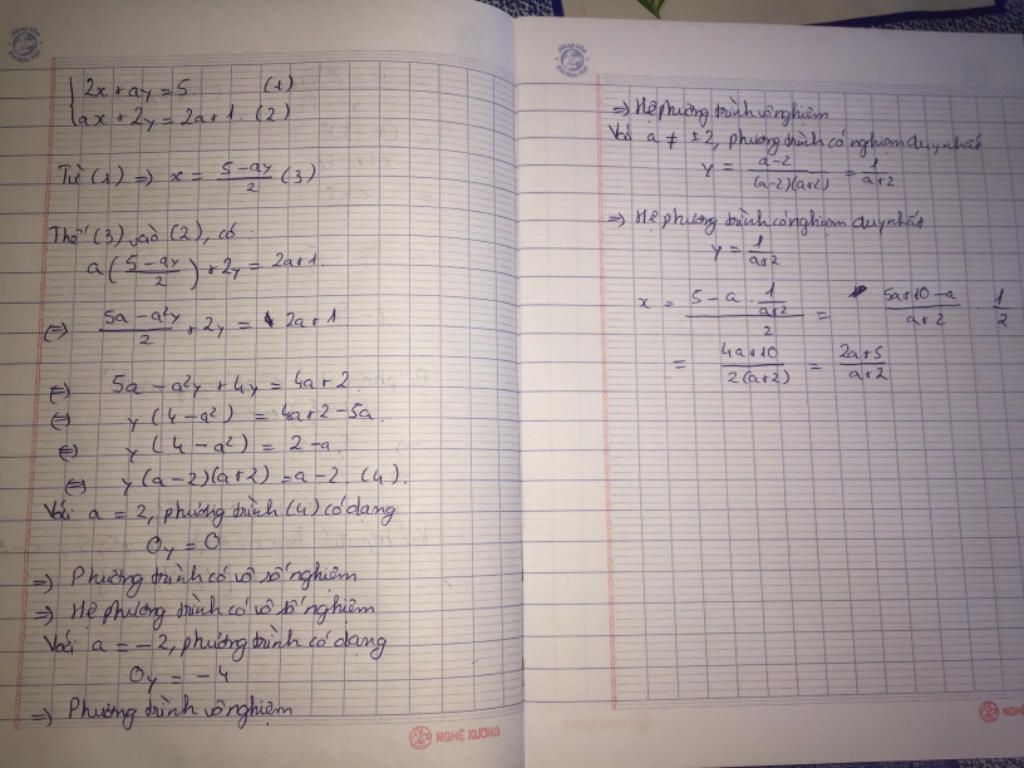 2x + ay = 5 (1)
ax + 2y = 2a + 1. (2)
Từ (1) => x = (5 - ay)/2 (3)
Thế (3) vào (2), có:
a((5 - ay)/2) + 2y = 2a + 1.
(=) (5a - a²y)/2 + 2y = 2a + 1
(=) 5a - a²y + 4y = 4a + 2.
(=) y(4 - a²) = 4a + 2 - 5a.
(=) y(4 - a²) = 2 - a.
(=) y(a - 2)(a + 2) = a - 2 (4).
Với a = 2, phương trình (4) có dạng
0y = 0
=) Phương trình có vô số nghiệm
=) Hệ phương trình có vô số nghiệm
Với a = -2, phương trình có dạng
0y = -4
=) Phương trình vô nghiệm
NGHỆ XƯƠNG
=) Hệ phương trình vô nghiệm
Với a ≠ ±2, phương trình có nghiệm duy nhất
y = (a - 2)/((a - 2)(a + 2)) = 1/(a + 2)
=) Hệ phương trình có nghiệm duy nhất
y = 1/(a + 2)
x = (5 - a . 1/(a + 2))/2 = (5a + 10 - a)/(a + 2) . 1/2
= (4a + 10)/(2(a + 2)) = (2a + 5)/(a + 2)